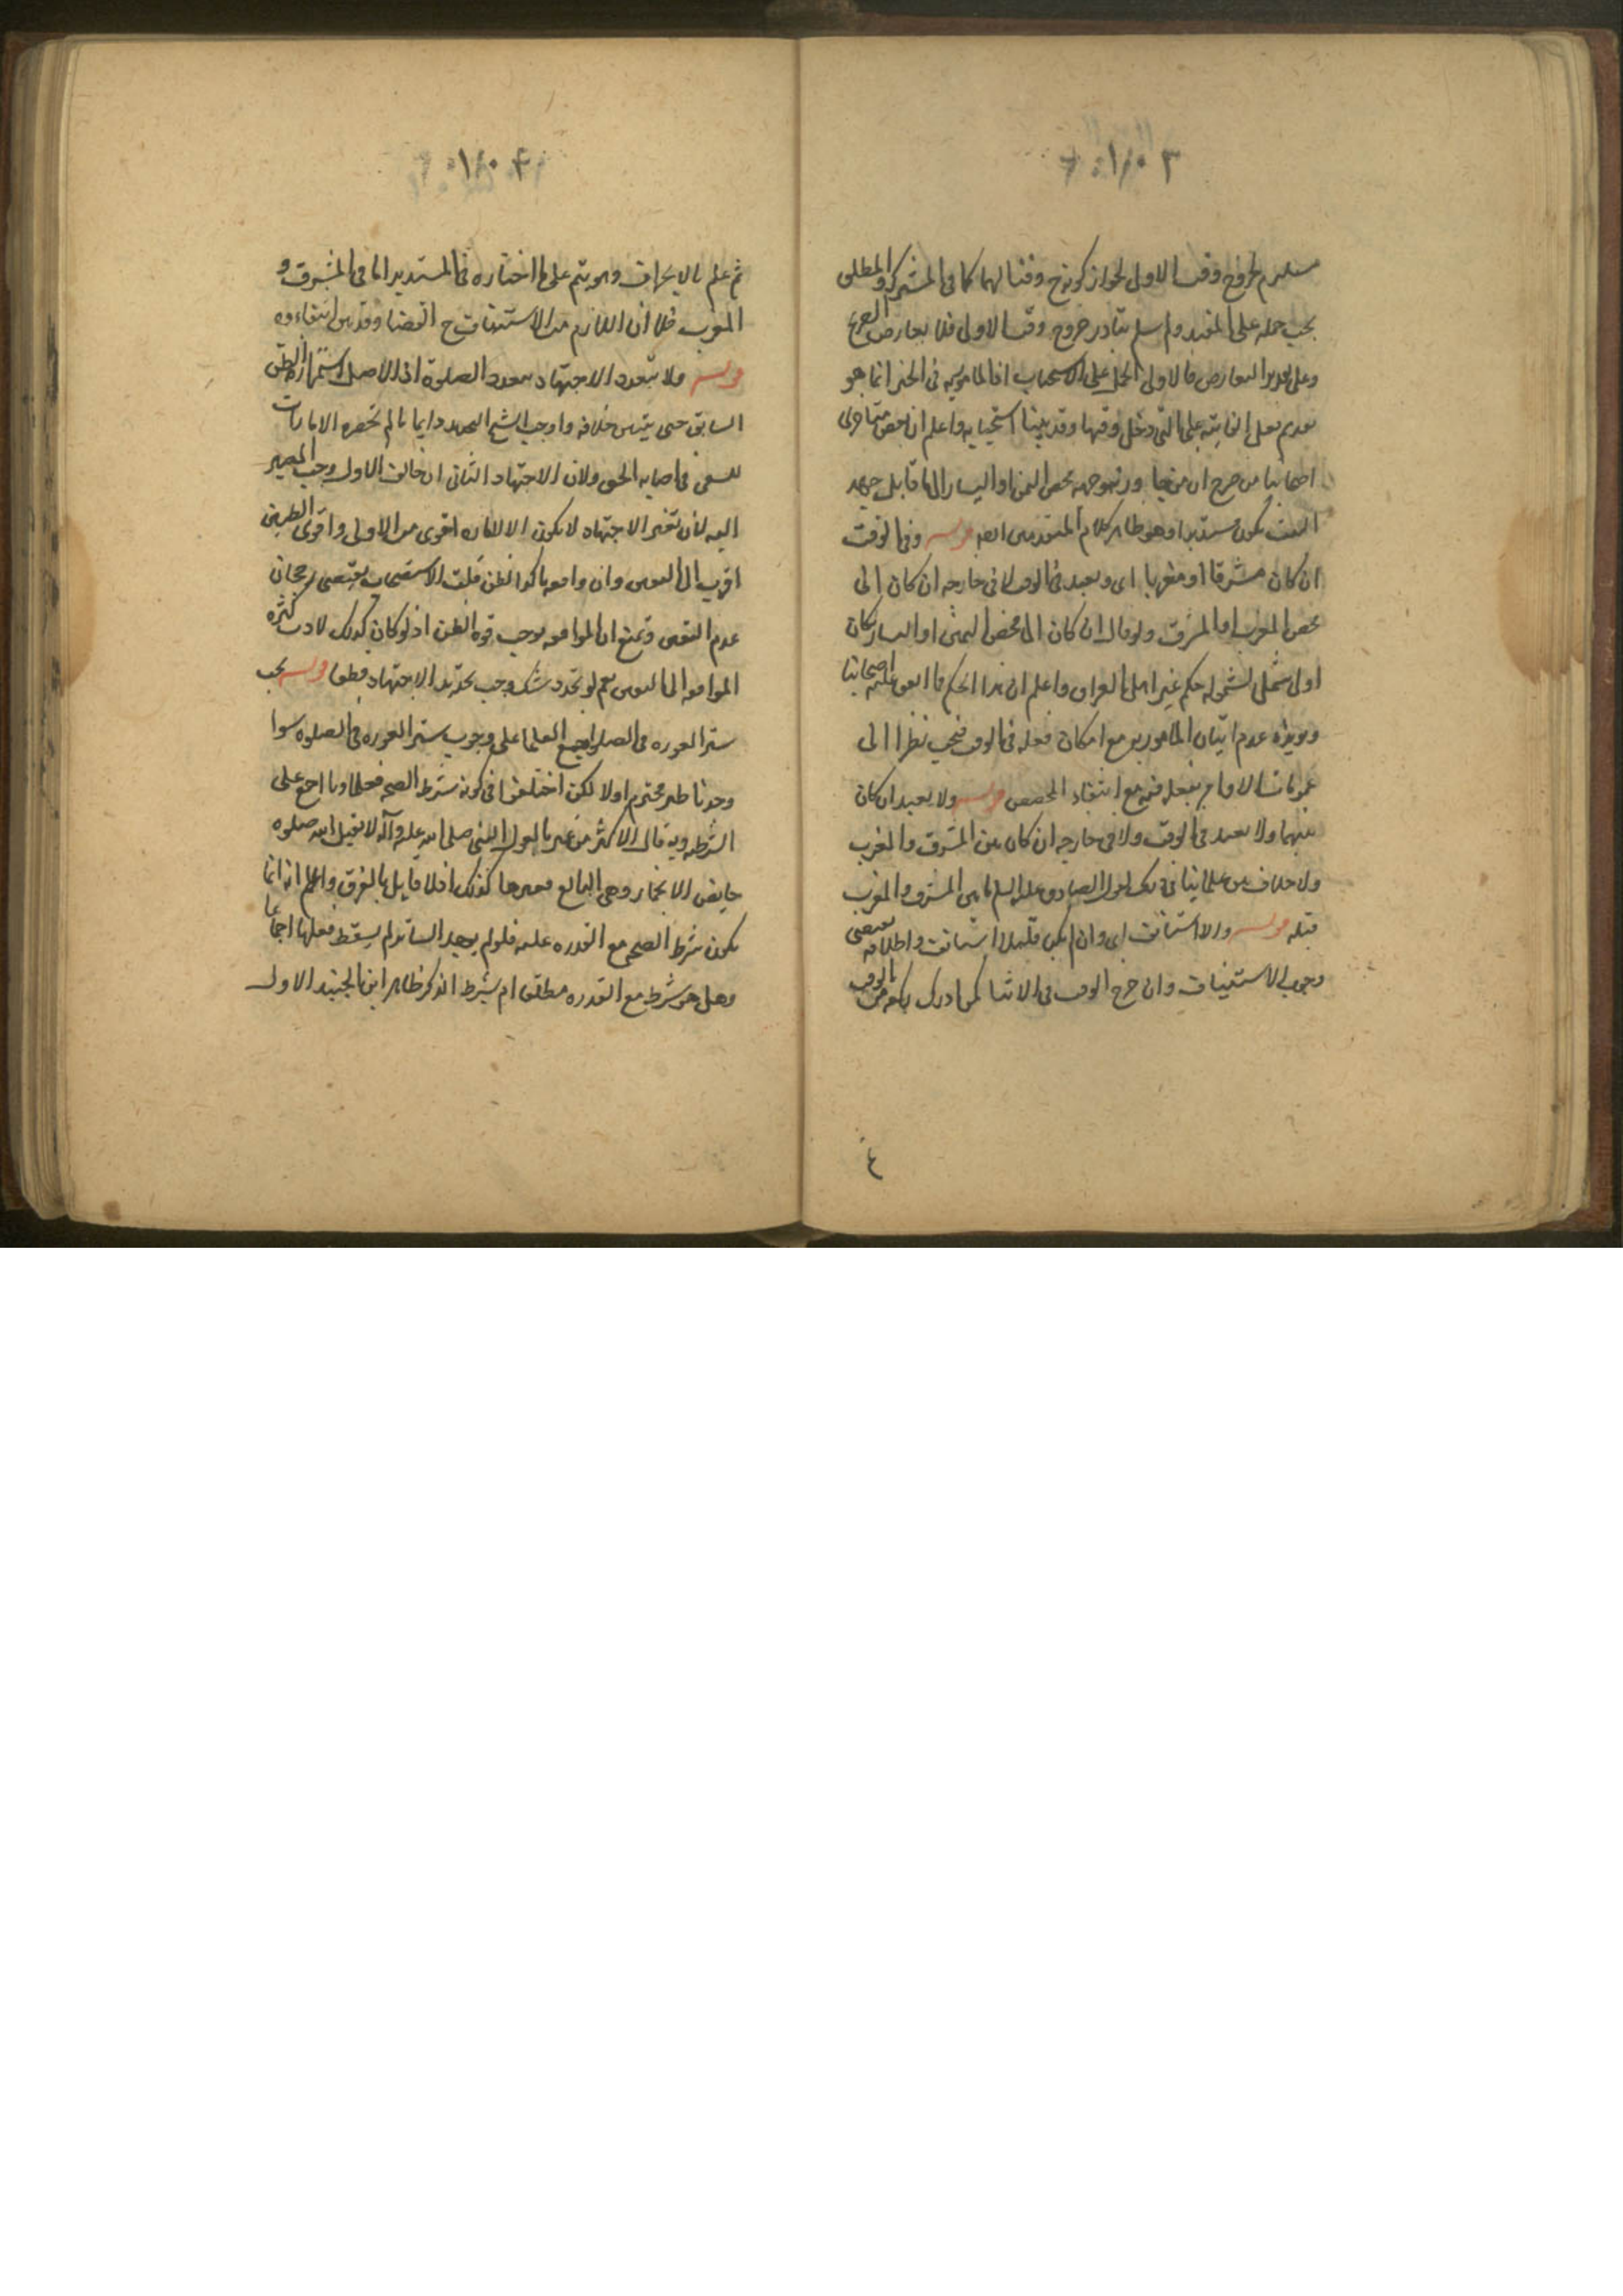 ١٨٠٣
مستلزم لخروج وقت الاولى لجواز كونه ح وقتا لهما كما فى المشترك والمطلق
يجب حمله على المقيد ولم اسلم تبادر خروج وقت الاولى فلا يعارض الصريح
وعلى تقدير التعارض فالاولى الحمل على الاستحباب اذ المامور به فى الخبر انما هو
تقديم فعل الفايتة على التى دخل وقتها وقد بينا استحبابه واعلم ان بعض متاخرى
اصحابنا من صرح ان من
البيت يكون مستدبرا وهو ظاهر كلام المتقدمين قوله وفى الوقت
ان كان مشرقا او مغربا اى ويعيد فى الوقت لا فى خارجه ان كان الى
محض المغرب او المشرق ولو قال ان كان الى محض اليمين او اليسار كان
اولى لشموله حكم غير اهل العراق واعلم ان هذا الحكم مما اتفق عليه اصحابنا
ويؤيده عدم اتيان المامور به مع امكان فعله فى الوقت فيجب نظرا الى
عمومات الاوامر بفعله فيه مع انتفاء المخصص قوله ولا يعيد ان كان
بينهما ولا يعيد فى الوقت ولا فى خارجه ان كان بين المشرق والمغرب
ولا خلاف بين علمائنا فى ذلك لقول الصادق عليه السلم ما بين المشرق والمغرب
قبلة قوله والا استانف اى وان لم يكن قليلا استانف واطلاقه يقتضى
وجوب الاستيناف وان خرج الوقت فى الاثنا كمن ادرك ركعة من الوقت
٤
١٨٠٤
ثم علم بالانحراف وهو يتم على ما اختاره فى المستدبر اما فى المشرق و
المغرب فلا اذ اللازم من الاستيناف ح القضا وقد بين انتفاءوه
قوله ولا يتعدد الاجتهاد بتعدد الصلوة اذ الاصل استمرار الظن
السابق حتى يتبين خلافه واوجب الشيخ التجديد دايما ما لم تحضره الامارات
للسعى فى اصابة الحق ولان الاجتهاد الثانى ان خالف الاول وجب المصير
اليه لان تغير الاجتهاد لا يكون الا لامارة اقوى من الاولى واقوى الظنين
اقرب الى اليقين وان وافقه تاكد الظن قلت الاستصحاب يقتضى رجحان
عدم النقض ونمنع ان الموافقة يوجب قوة الظن اذ لو كان كذلك لادت كثرة
الموافقة الى اليقين نعم لو تجدد شك وجب تجديد الاجتهاد قطعا قوله يجب
ستر العورة فى الصلوة اجمع العلما على وجوب ستر العورة فى الصلوة سوا
وجد ناظر محترم او لا لكن اختلفوا فى كونه شرط الصحة فعلماونا اجمع على
الشرطية وبه قال الاكثر من غيرنا لقول النبى صلى الله عليه وآله لا يقبل الله صلوة
حايض الا بخمار وهى البالغ فغيرها كذلك اذ لا قايل بالفرق واعلم انه انما
يكون شرط الصحة مع القدرة عليه فلو لم يوجد الساتر لم يسقط فعلها اجماعا
وهل هو شرط مع القدرة مطلقا ام بشرط الذكر ظاهر ابن الجنيد الاول